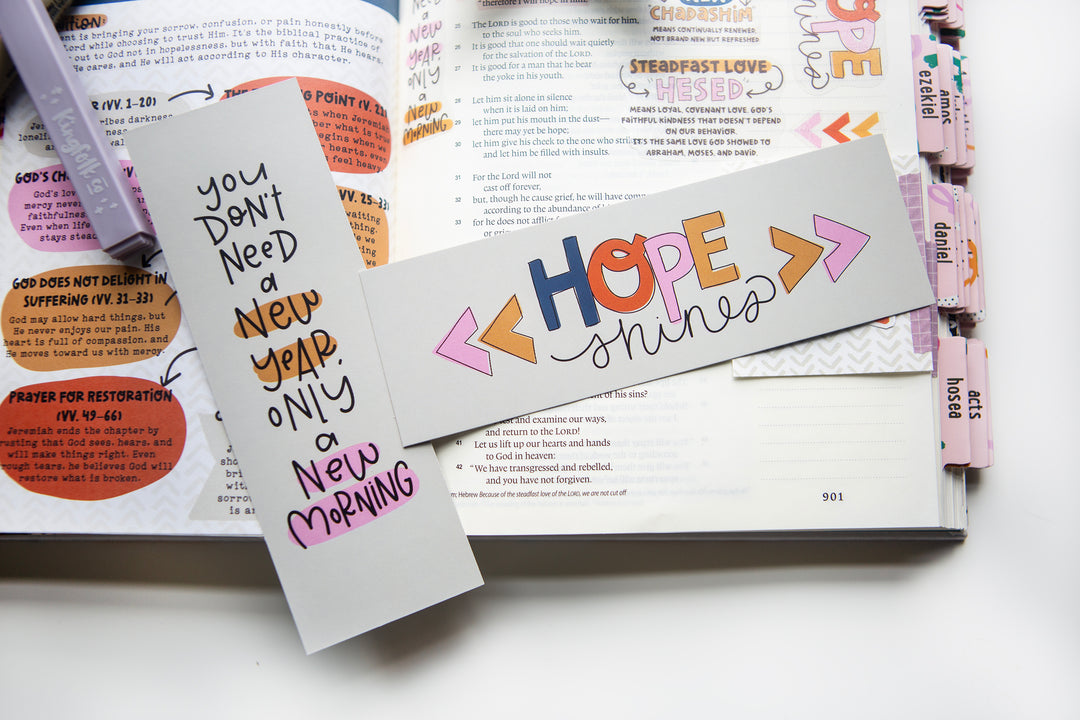 ent is bringing your sorrow, confusion, or pain honestly before
Lord while choosing to trust Him. It's the biblical practice of
out to God not in hopelessness, but with faith that He hears,
He cares, and He will act according to His character.
(VV. 1-20)
POINT (V. 21
GOD'S
God's
mercy never
faithfulness
Even when life
stays
GOD DOES NOT DELIGHT in
SUFFERING (VV. 31-33)
God may allow hard things, but
He never enjoys our pain. His
heart is full of compassion, and
He moves toward us with mercy.
PRAYER FOR RESTORATION
(VV. 49-66)
Jeremiah ends the chapter by
trusting that God sees, hears, and
will make things right. Even
through tears, he believes God will
restore what is broken.
VV. 25-33)
waiting
Kingfolk co
YOU
DON'T
NEED
a
NEW
YEAR,
ONLY
a
NEW
MORNING
NEED
a
NEW
YEAR,
ONLY
a
NEW
MORNING
"therefore I will hope in him."
25 The LORD is good to those who wait for him,
to the soul who seeks him.
26 It is good that one should wait quietly
for the salvation of the LORD.
27 It is good for a man that he bear
the yoke in his youth.
28 Let him sit alone in silence
when it is laid on him;
29 let him put his mouth in the dust—
there may yet be hope;
30 let him give his cheek to the one who
and let him be filled with insults.
31 For the Lord will not
cast off forever,
32 but, though he cause grief, he will have
according to the abundance of
33 for he does not
HOPE
shines
of his sins?
and examine our ways,
and return to the LORD!
41 Let us lift up our hearts and hands
to God in heaven:
42 "We have transgressed and rebelled,
and you have not forgiven.
Hebrew Because of the steadfast love of the LORD, we are not cut off
901
"CHADASHIM"
MEANS CONTINUALLY RENEWED,
NOT BRAND NEW BUT REFRESHED.
STEADFAST LOVE
HESED
MEANS LOYAL, COVENANT LOVE, GOD'S
FAITHFUL KINDNESS THAT DOESN'T DEPEND
ON OUR BEHAVIOR.
IT'S THE SAME LOVE GOD SHOWED TO
ABRAHAM, MOSES, AND DAVID.
HOPE
shines
ezekiel
amos
daniel
hosea
acts